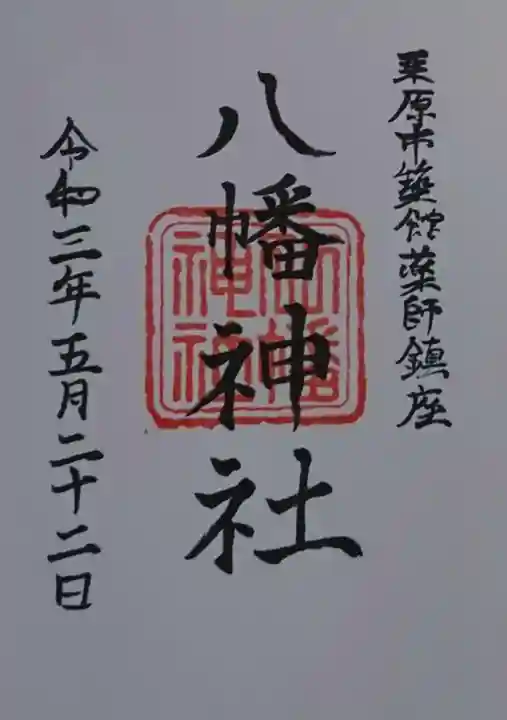 栗原市築館薬師鎮座
八幡神社
八幡神社
令和三年五月二十二日